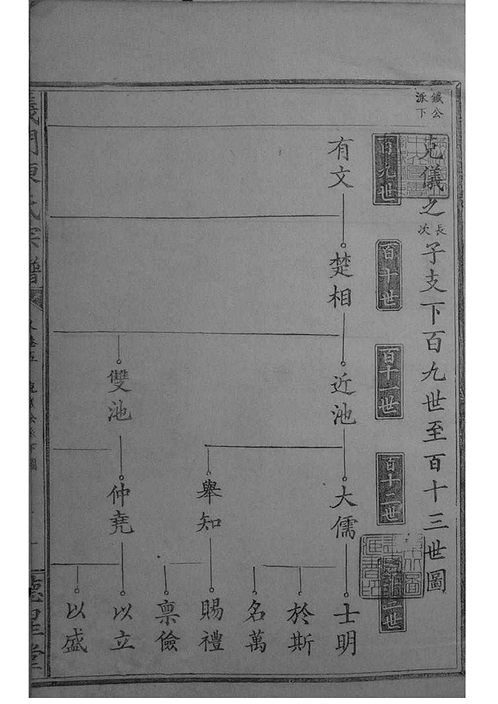 鐵公
派下
克儀之長次子支下百九世至百十三世圖
百九世
百十世
百十一世
百十二世
有文
楚相
近池
雙池
大儒
舉知
仲堯
士明
於斯
名萬
賜禮
禀儉
以立
以盛
義門陳氏宗譜